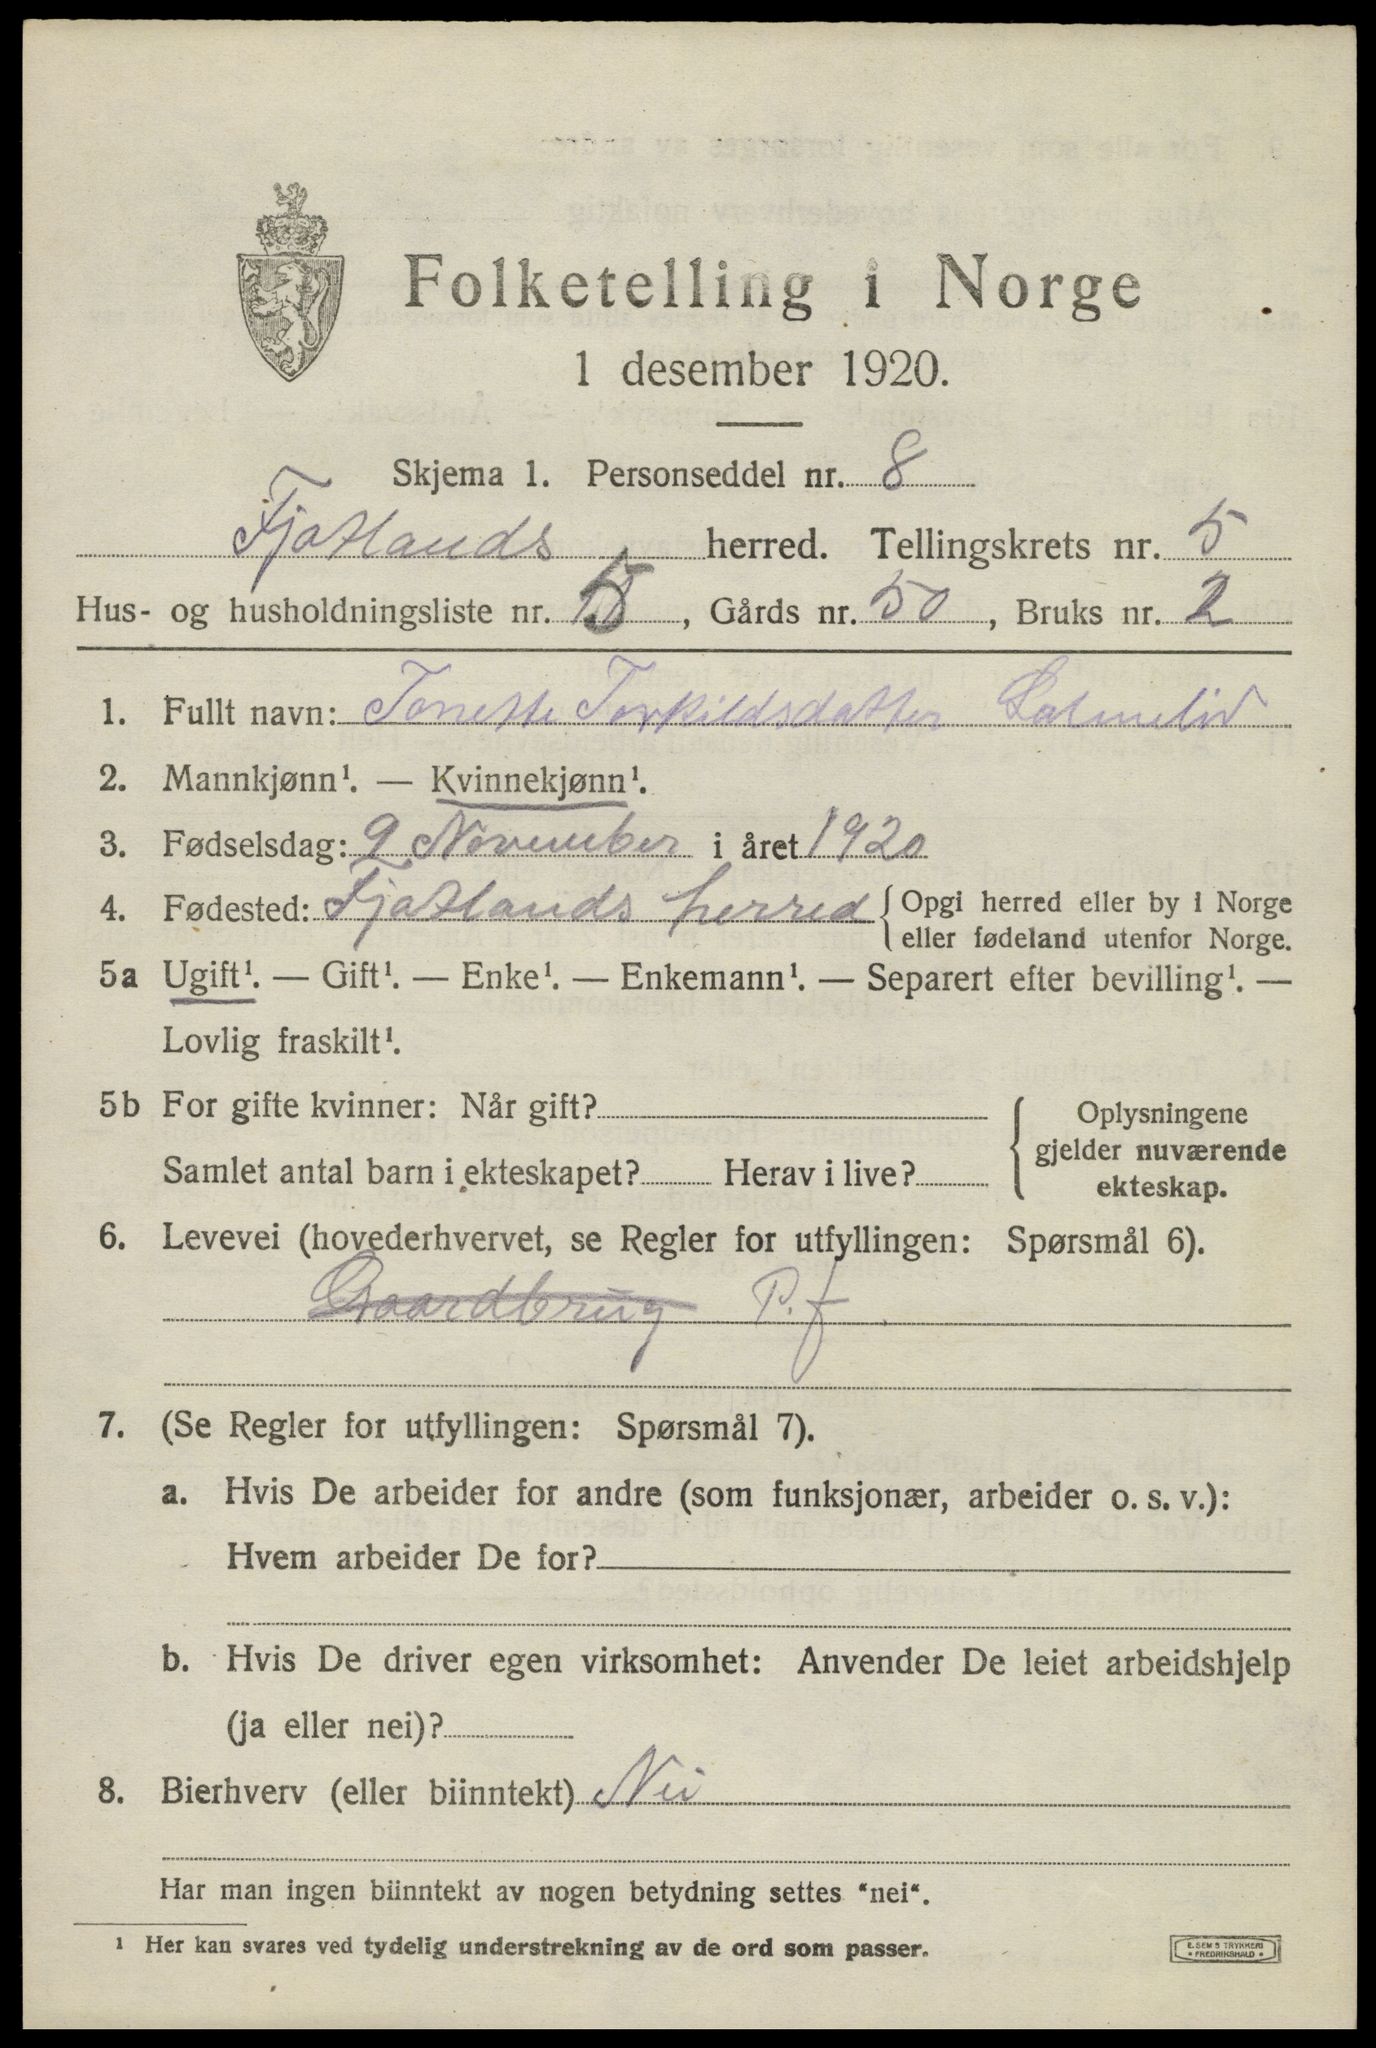 Folketelling i Norge
1 desember 1920.
Skjema 1. Personseddel nr. 8
Fjotlands herred. Tellingskrets nr. 5
Hus- og husholdningsliste nr. 5, Gårds nr. 50, Bruks nr. 2
1. Fullt navn: Tonette Torkildsdatter
2. Mannkjønn¹. — Kvinnekjønn¹.
3. Fødselsdag: 9 November i året 1920
4. Fødested: Fjotlands herred { Opgi herred eller by i Norge
eller fødeland utenfor Norge.
5a Ugift¹. — Gift¹. — Enke¹. — Enkemann¹. — Separert efter bevilling¹. —
Lovlig fraskilt¹.
5b For gifte kvinner: Når gift? { Oplysningene
gjelder nuværende
Samlet antal barn i ekteskapet? Herav i live?
ekteskap.
6. Levevei (hovederhvervet, se Regler for utfyllingen: Spørsmål 6).
Gaardbrug P.f
7. (Se Regler for utfyllingen: Spørsmål 7).
a. Hvis De arbeider for andre (som funksjonær, arbeider o. s. v.):
Hvem arbeider De for?
b. Hvis De driver egen virksomhet: Anvender De leiet arbeidshjelp
(ja eller nei)?
8. Bierhverv (eller biinntekt) Nei
Har man ingen biinntekt av nogen betydning settes "nei".
¹ Her kan svares ved tydelig understrekning av de ord som passer.
E. SEM'S TRYKKERI
• FREDRIKSHALD •